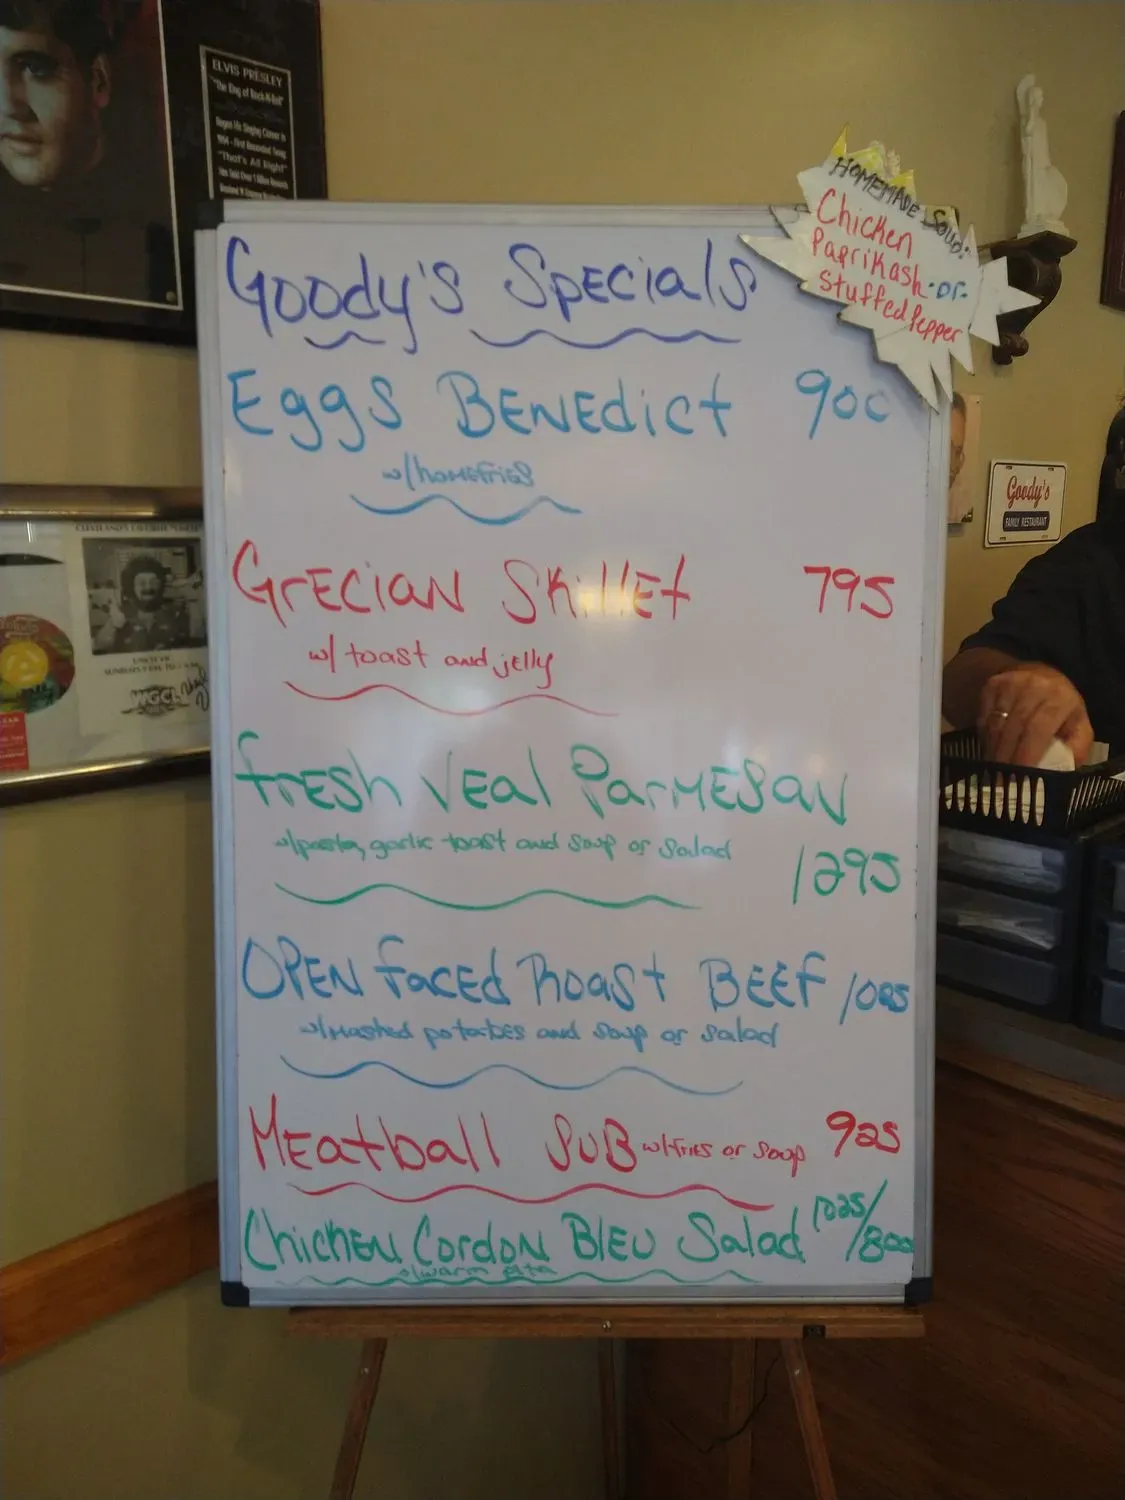 ELVIS PRESLEY
"The King of Rock-N-Roll"
Began His Singing Career in
1954 - First Recorded Song
"That's All Right"
HOMEMADE SOUP:
Chicken
Paprikash -or-
Stuffed Pepper
Goody's Specials
Eggs Benedict 900
w/homefries
Grecian Skillet 795
w/ toast and jelly
Fresh Veal Parmesan
w/pasta, garlic toast and soup or salad
1295
Open Faced Roast Beef 1095
w/mashed potatoes and soup or salad
Meatball Sub w/fries or soup 925
Chicken Cordon Bleu Salad 1025/800
w/warm pita
Goody's
FAMILY RESTAURANT
WGCL